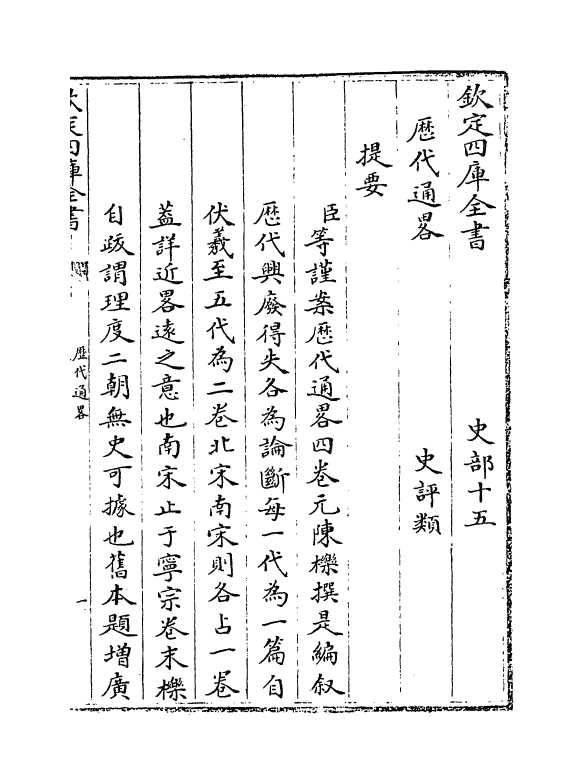 欽定四庫全書　史部十五
歴代通畧　史評類
提要
臣等謹案歴代通畧四卷元陳櫟撰是編叙
歴代興廢得失各為論斷每一代為一篇自
伏羲至五代為二卷北宋南宋則各占一卷
葢詳近畧遠之意也南宋止于寧宗卷末櫟
自䟦謂理度二朝無史可據也舊本題增廣
欽定四庫全書
歴代通畧
一